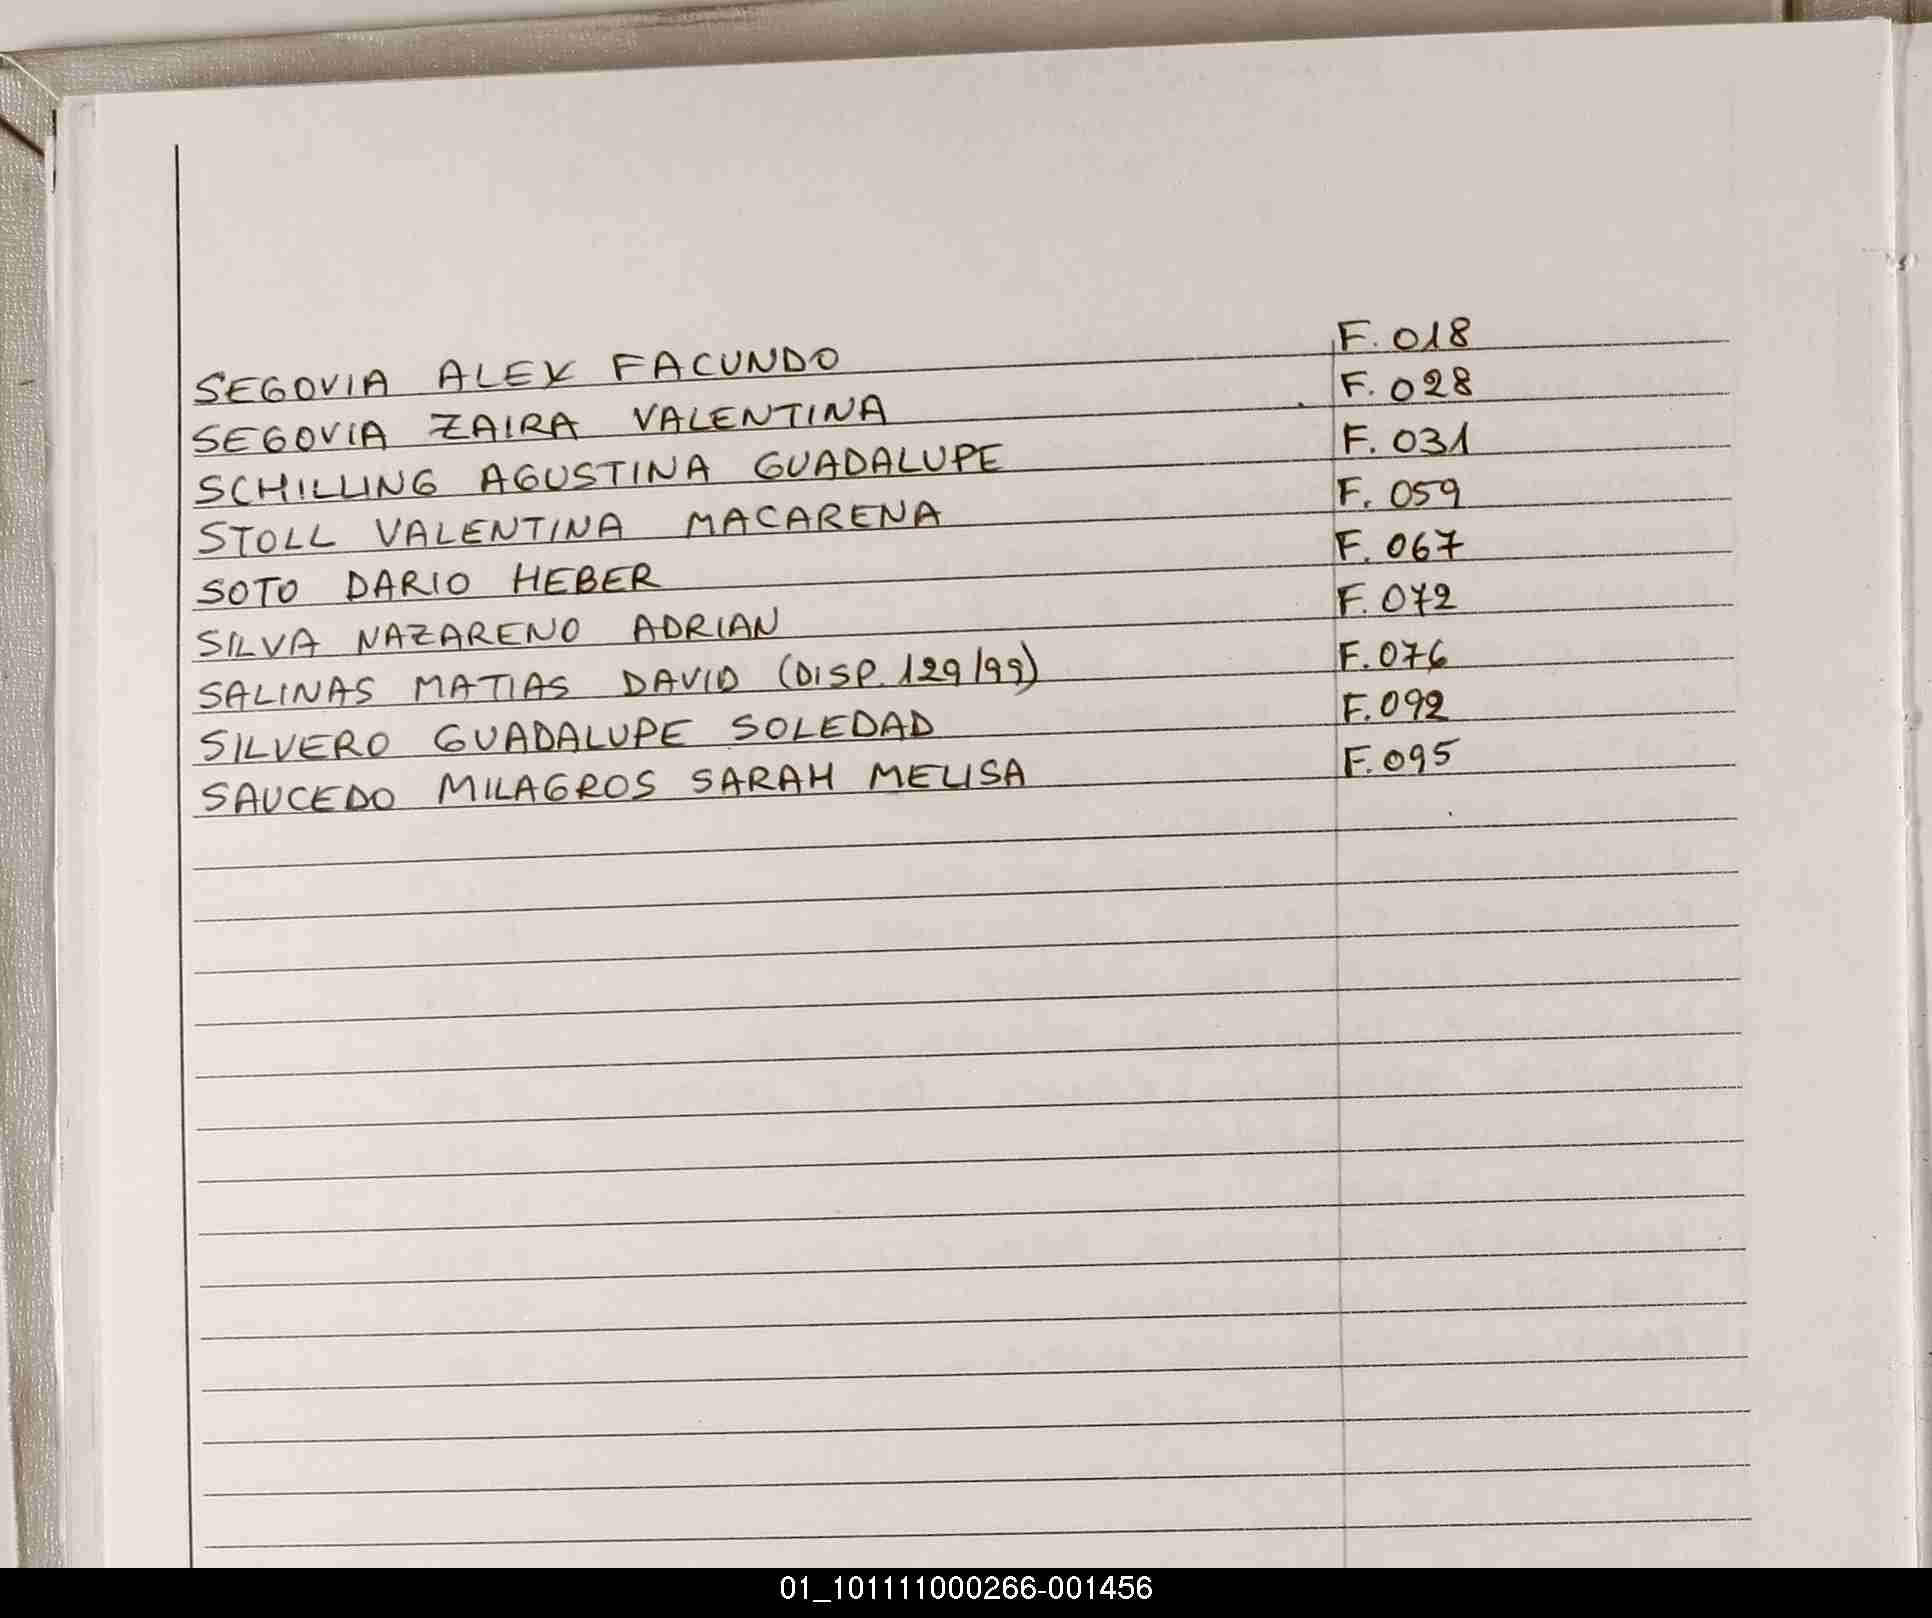 SEGOVIA ALEX FACUNDO F. 018
SEGOVIA ZAIRA VALENTINA F. 028
SCHILLING AGUSTINA GUADALUPE F. 031
STOLL VALENTINA MACARENA F. 059
SOTO DARIO HEBER F. 067
SILVA NAZARENO ADRIAN F. 072
SALINAS MATIAS DAVID (DISP. 129/99) F. 076
SILVERO GUADALUPE SOLEDAD F. 092
SAUCEDO MILAGROS SARAH MELISA F. 095
01_101111000266-001456